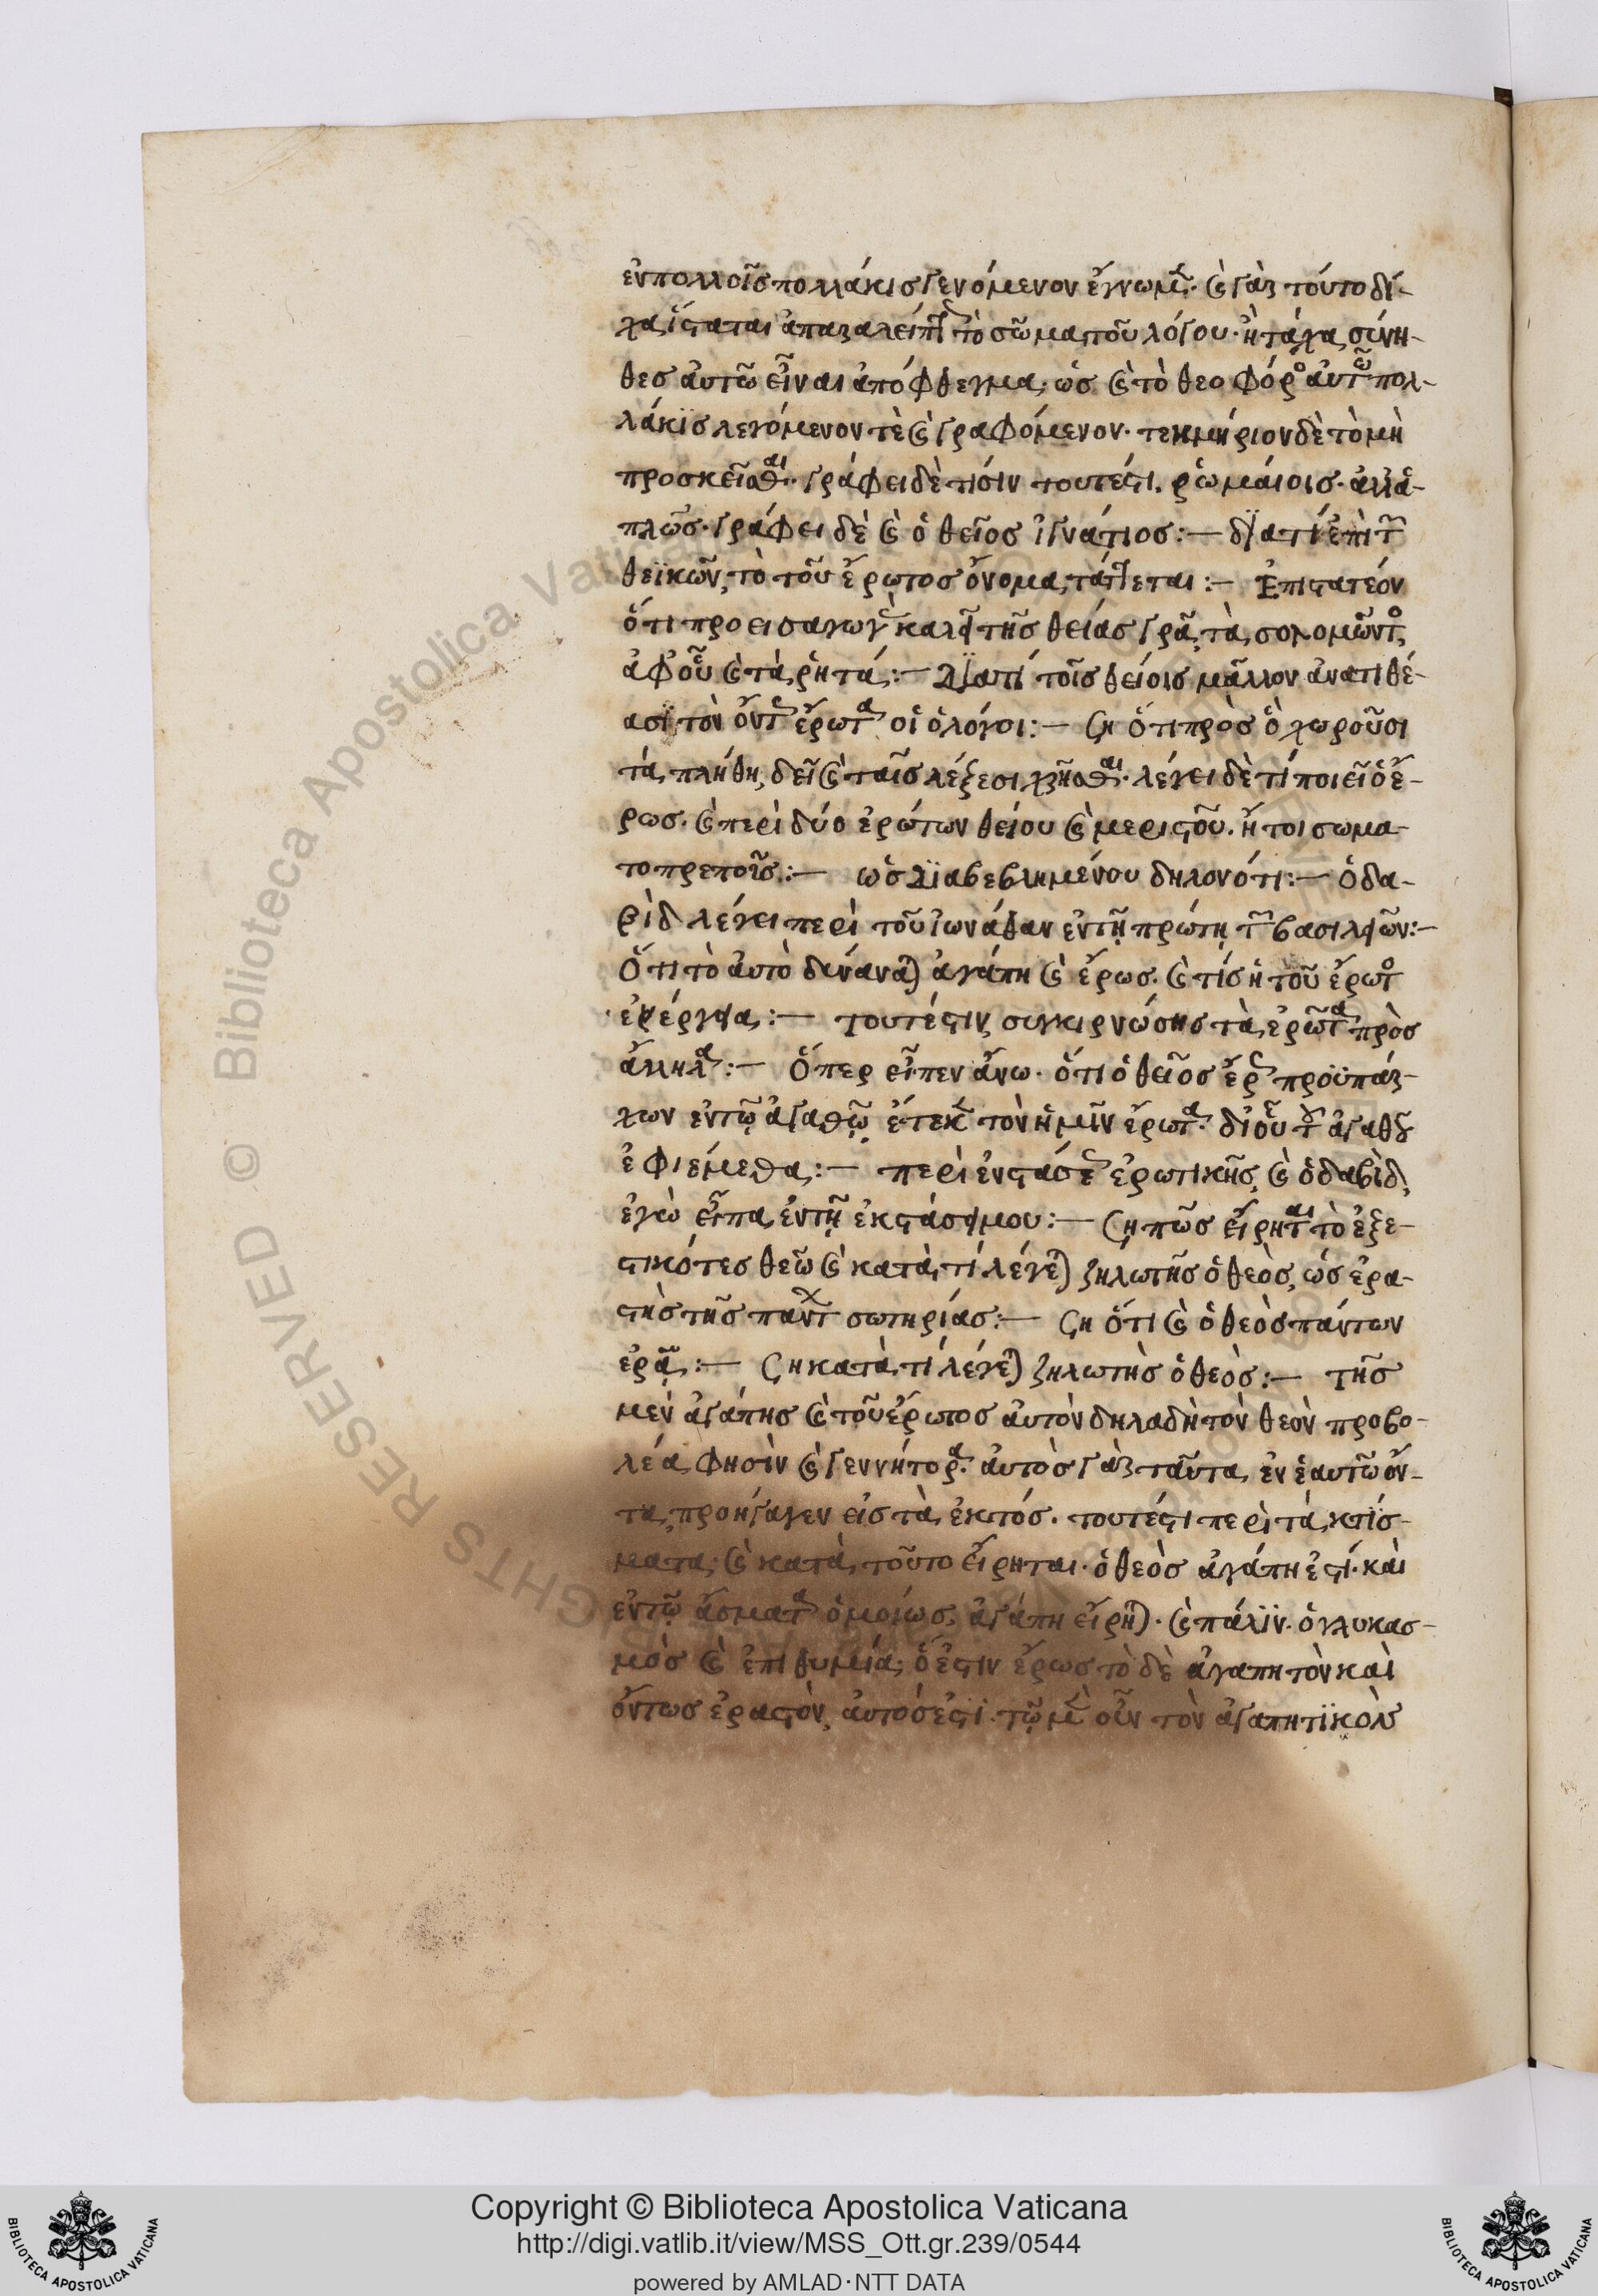 ἐν πολλοῖς πολλάκις γενόμενον ἔγνωμεν· καὶ γὰρ τοῦτο δί-
χα ἵσταται ἀπαραλείπτως τὸ σῶμα τοῦ λόγου· ἢ τάχα σύνη-
θες αὐτῶ εἶναι ἀπόφθεγμα, ὡς καὶ τὸ θεοφόρος αὐτῶ πολ-
λάκις λεγόμενον τὲ καὶ γραφόμενον· τεκμήριον δὲ τὸ μὴ
προσκεῖσθαι· γράφει δὲ τισὶν τουτέστι ῥωμαίοις· ἀλλ' ἁ-
πλῶς· γράφει δὲ καὶ ὁ θεῖος ἰγνάτιος:— διατί ἐπὶ τῶν
θεϊκῶν, τὸ τοῦ ἔρωτος ὄνομα τάττεται:— Ἐπιστατέον
ὅτι προεισαγωγὰς καλεῖ τῆς θείας γραφῆς τὰ σολομῶντος,
ἀφ' οὗ καὶ τὰ ῥητά:— Διατί τοῖς θείοις μᾶλλον ἀνατιθέ-
ασι τὸν ὄντως ἔρωτα οἱ θεολόγοι:— ση ὅτι πρὸς ὃ χωροῦσι
τὰ πλήθη, δεῖ καὶ ταῖς λέξεσι χρῆσθαι· λέγει δὲ τί ποιεῖ ὁ ἔ-
ρως. καὶ περὶ δύο ἐρώτων θείου καὶ μεριστοῦ. ἤτοι σωμα-
τοπρεποῦς:— ὡς διαβεβλημένου δηλονότι:— ὁ δα-
βὶδ λέγει περὶ τοῦ ἰωνάθαν ἐν τῇ πρώτη τῶν βασιλειῶν:—
Ὅτι τὸ αὐτὸ δύναται ἀγάπη καὶ ἔρως. καὶ τίς ἡ τοῦ ἔρωτος
ἐνέργεια:— τουτέστιν συγκιρνώσης τὰ ἐρῶντα πρὸς
ἄλληλα:— Ὅπερ εἶπεν ἄνω· ὅτι ὁ θεῖος ἔρως προϋπάρ-
χων ἐν τῷ ἀγαθῷ ἔτεκεν τὸν ἡμῖν ἔρωτα· δι' οὗ τοῦ ἀγαθοῦ
ἐφιέμεθα:— περὶ ἐνστάσεως ἐρωτικῆς, καὶ ὁ δαβὶδ,
ἐγὼ εἶπα, ἐν τῇ ἐκστάσει μου:— ση πῶς εἴρηται τὸ ἐξε-
στικότες θεῶ καὶ κατὰ τί λέγεται ζηλωτὴς ὁ θεὸς, ὡς ἐρα-
στὴς τῆς πάντων σωτηρίας:— ση ὅτι καὶ ὁ θεὸς πάντων
ἐρᾷ:— ση κατὰ τί λέγεται ζηλωτὴς ὁ θεὸς:— τῆς
μὲν ἀγάπης καὶ τοῦ ἔρωτος αὐτὸν δηλαδὴ τὸν θεὸν προβο-
λέα φησὶν καὶ γεννήτορα· αὐτὸς γὰρ ταῦτα ἐν ἑαυτῶ ὄν-
τα, προήγαγεν εἰς τὰ ἐκτός. τουτέστι περὶ τὰ κτίσ-
ματα· καὶ κατὰ τοῦτο εἴρηται· ὁ θεὸς ἀγάπη ἐστί· καὶ
ἐν τῷ ἄσματι ὁμοίως ἀγάπη εἴρηται· καὶ πάλιν· ὁ γλυκασ-
μὸς καὶ ἐπιθυμία, ὅ ἐστιν ἔρως τὸ δὲ ἀγαπητὸν καὶ
ὄντως ἐραστὸν, αὐτός ἐστι· τῷ μὲν οὖν τὸν ἀγαπητικὸν
Copyright © Biblioteca Apostolica Vaticana
http://digi.vatlib.it/view/MSS_Ott.gr.239/0544
powered by AMLAD·NTT DATA